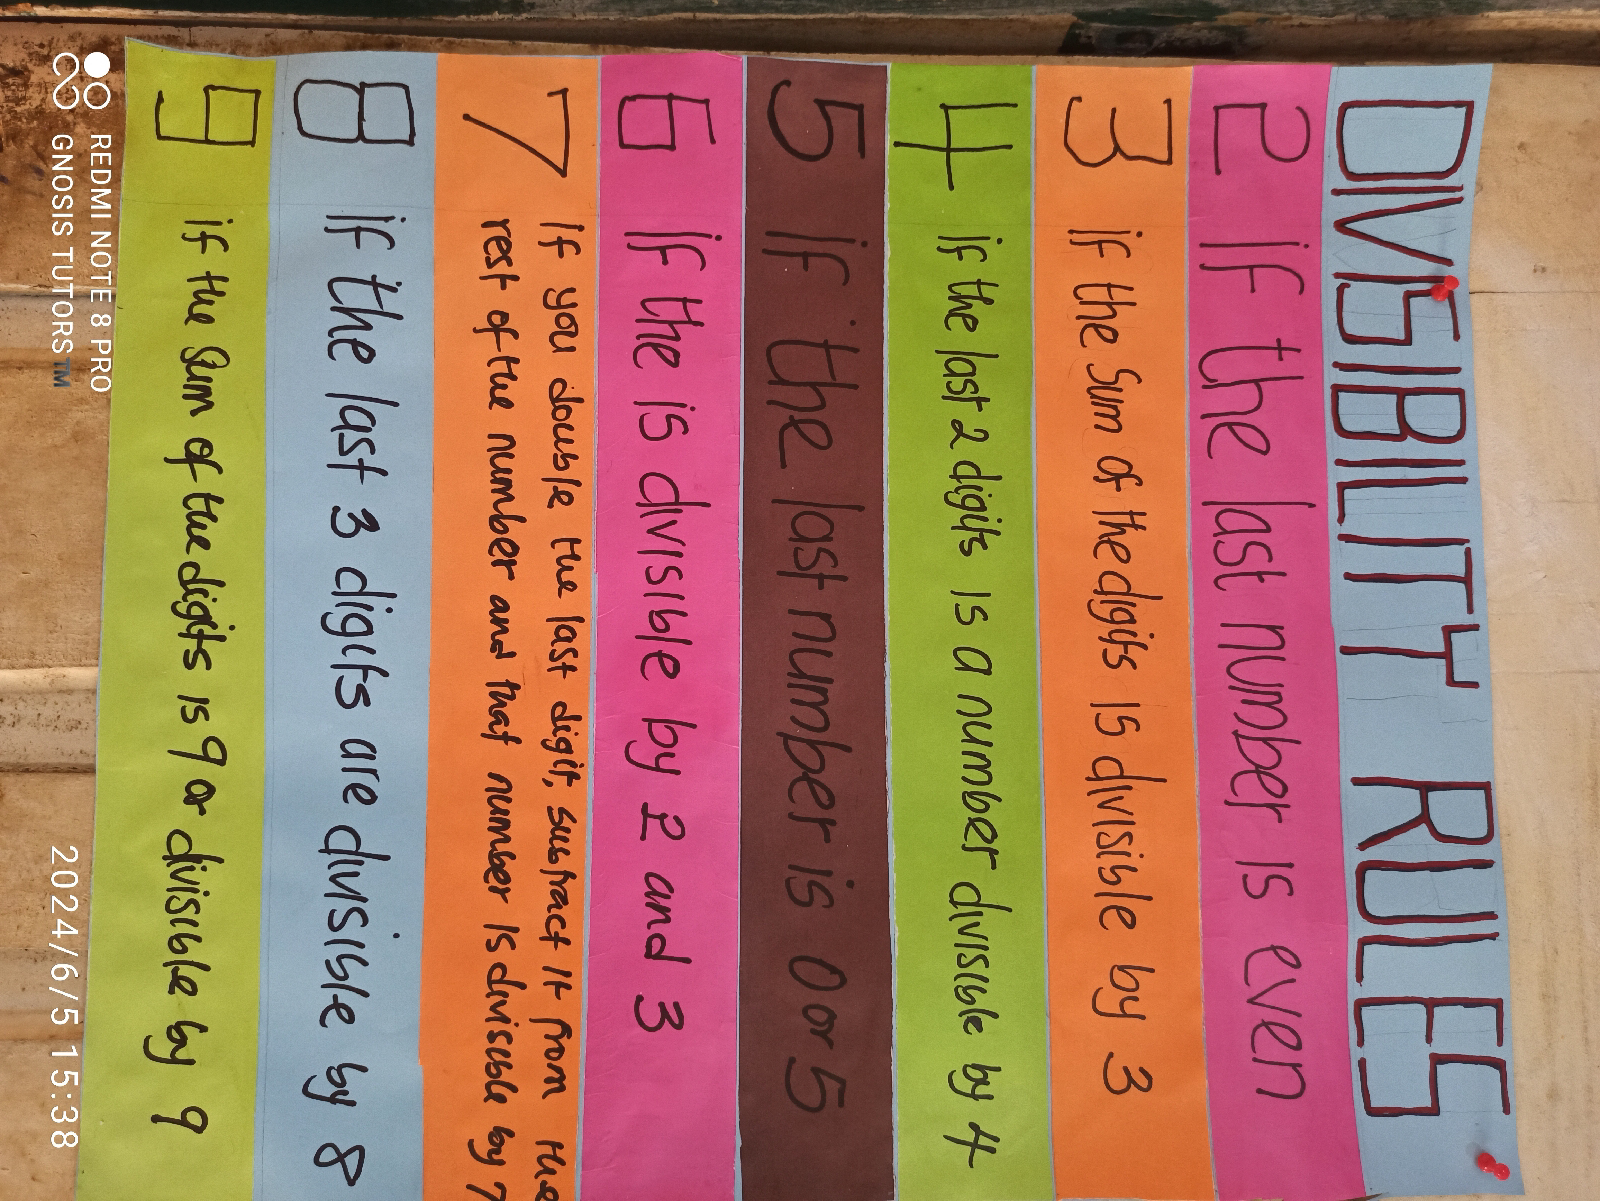 DIVISIBILITY RULES
2 if the last number is even
3 if the Sum of the digits is divisible by 3
4 if the last 2 digits is a number divisible by 4
5 if the last number is 0 or 5
6 if the is divisible by 2 and 3
7 If you double the last digit, subtract it from the
rest of the number and that number is divisible by 7
8 if the last 3 digits are divisible by 8
9 if the Sum of the digits is 9 or divisible by 9
REDMI NOTE 8 PRO
GNOSIS TUTORS™
2024/6/5 15:38